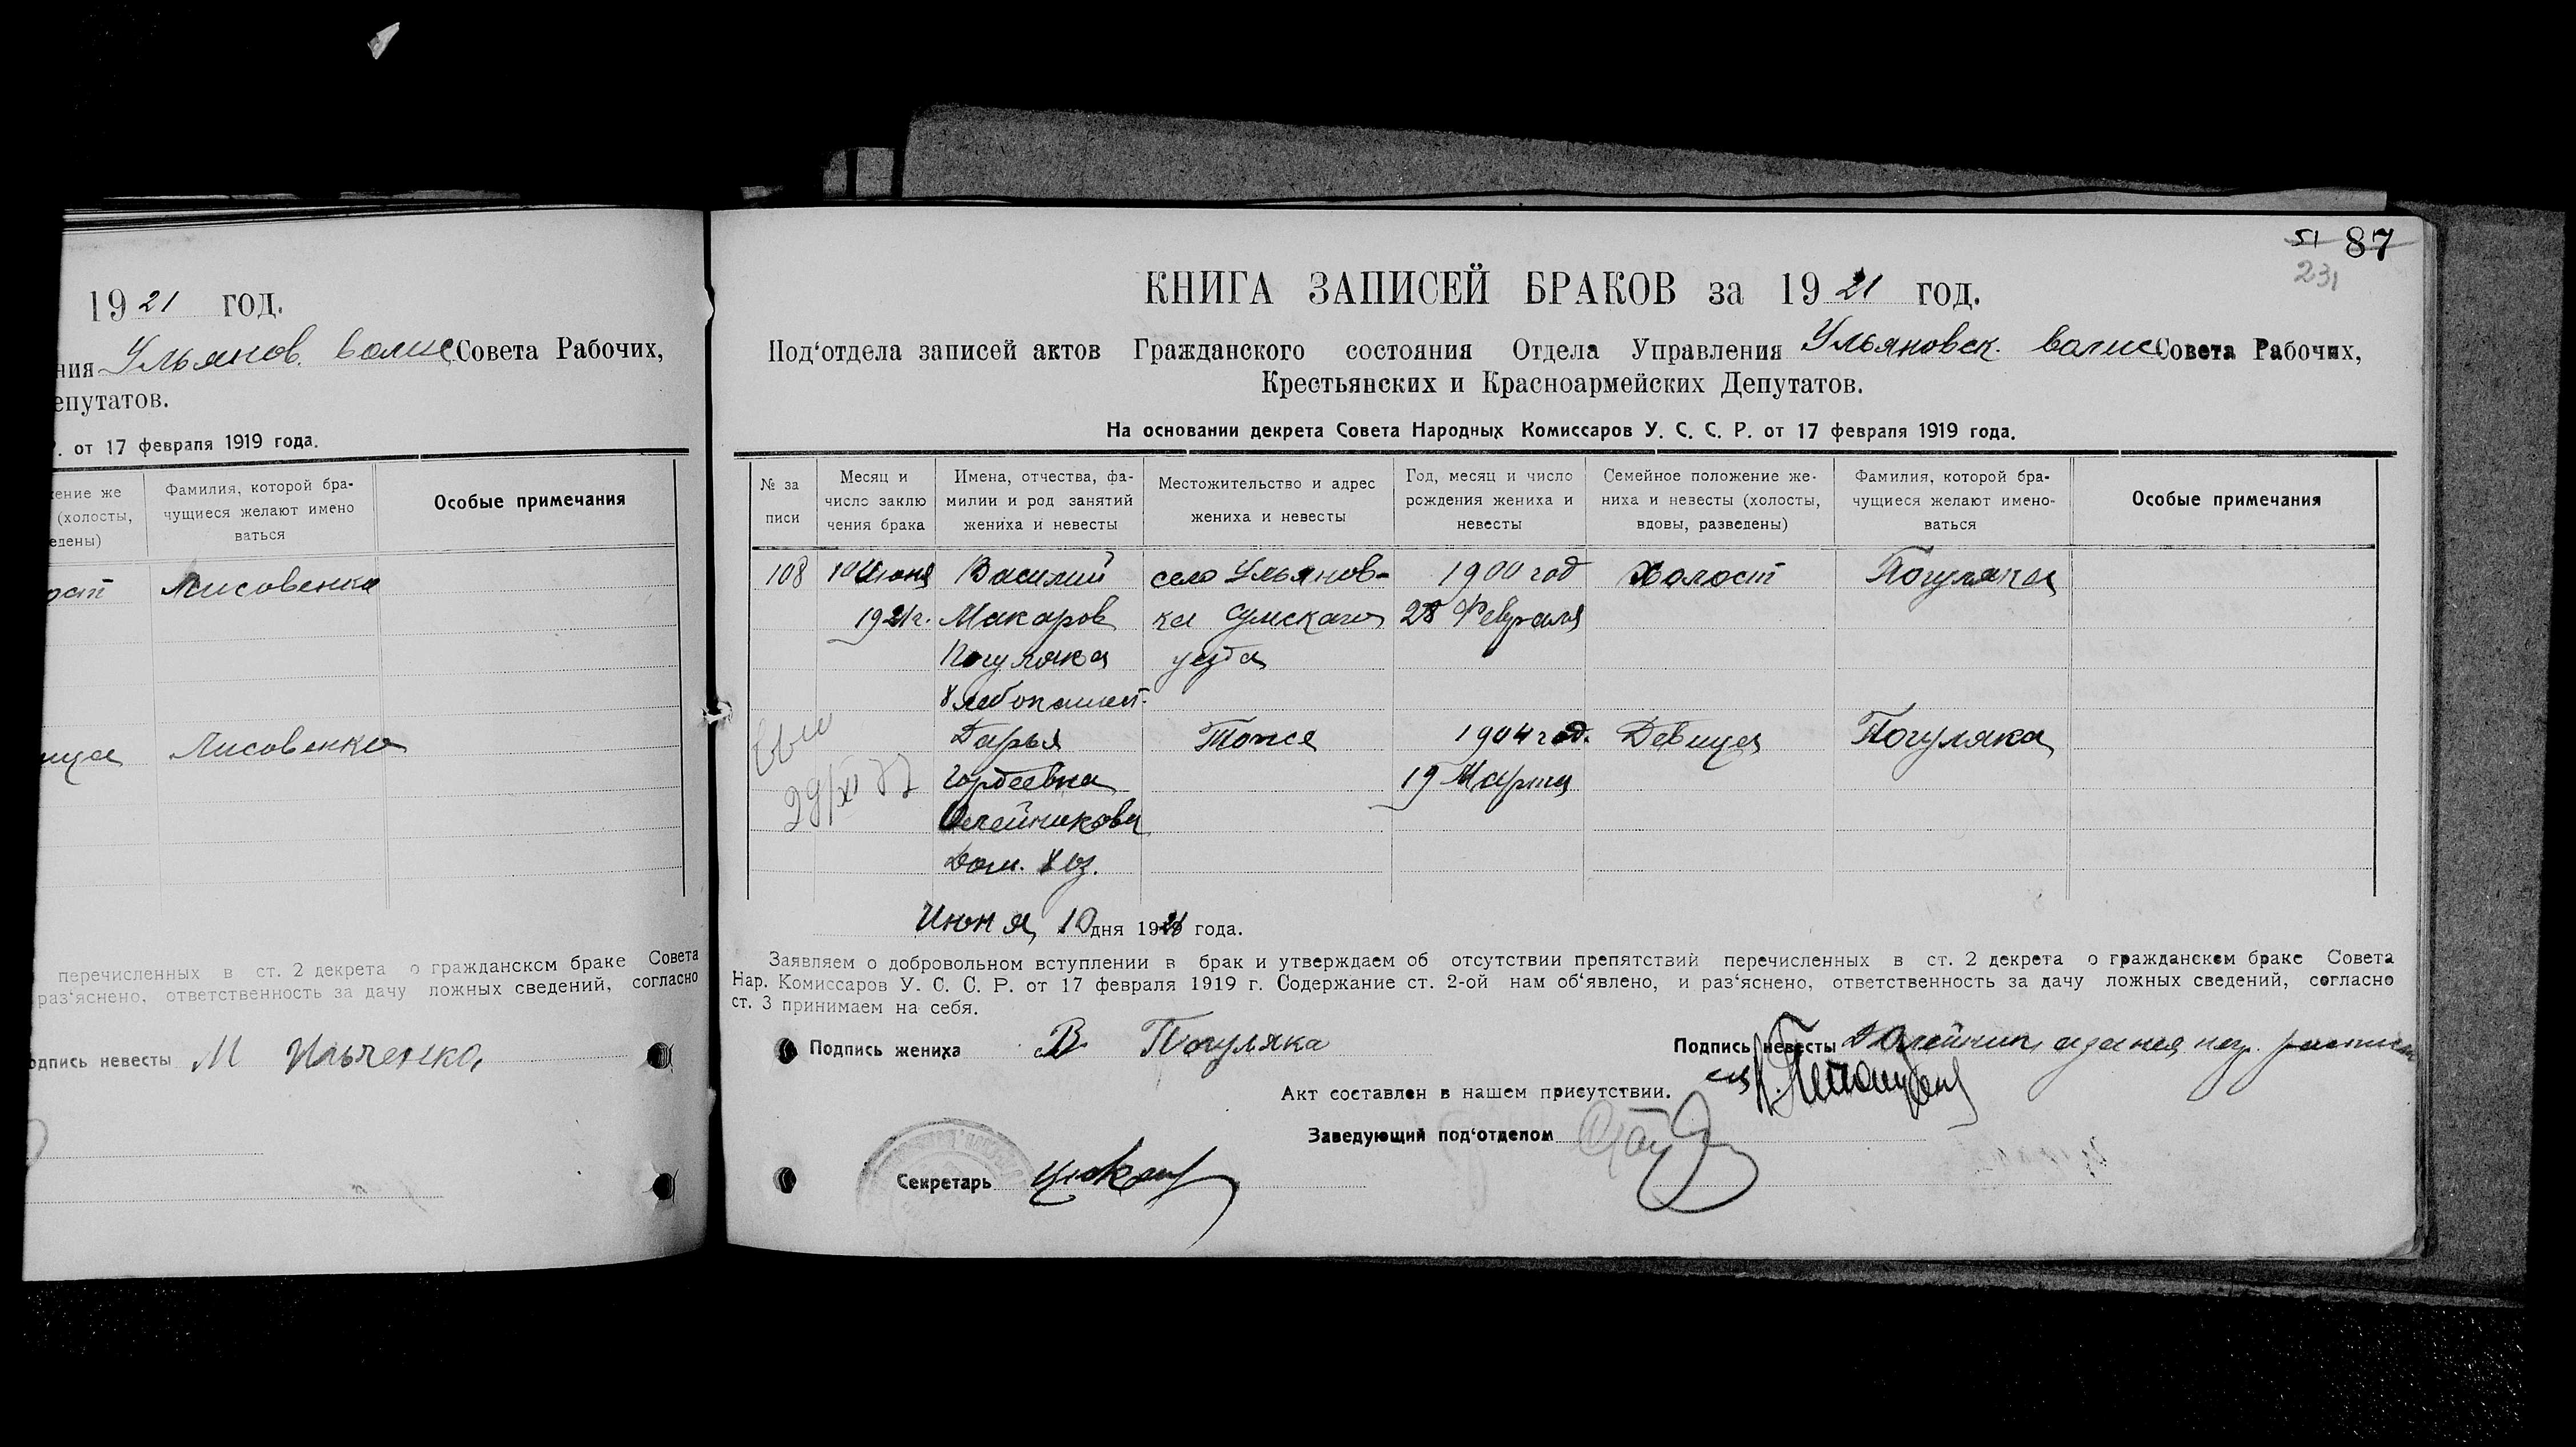 1921 год.
ния Ульянов. волис Совета Рабочих,
епутатов.
Р. от 17 февраля 1919 года.
ение же
(холосты,
едены)
Фамилия, которой бра-
чущиеся желают имено
ваться
Особые примечания
ост Лисовенко
ица Лисовенко
перечисленных в ст. 2 декрета о гражданском браке Совета
раз‘яснено, ответственность за дачу ложных сведений, согласно
одпись невесты М Ильченко
51 87
231
КНИГА ЗАПИСЕЙ БРАКОВ за 1921 год.
Под‘отдела записей актов Гражданского состояния Отдела Управления Ульяновск. волис Совета Рабочих,
Крестьянских и Красноармейских Депутатов.
На основании декрета Совета Народных Комиссаров У. С. С. Р. от 17 февраля 1919 года.
№ за
писи
Месяц и
число заклю
чения брака
Имена, отчества, фа-
милии и род занятий
жениха и невесты
Местожительство и адрес
жениха и невесты
Год, месяц и число
рождения жениха и
невесты
Семейное положение же-
ниха и невесты (холосты,
вдовы, разведены)
Фамилия, которой бра-
чущиеся желают имено-
ваться
Особые примечания
108 10 Июня Василий село Ульянов- 1900 год Холост Погуляка
1921г. Макаров ка Сумскаго 28 Февраля
Погуляка уезда
хлебопашест.
Дарья Тоже 1904 год. Девица Погуляка
Гордеевна 19 Марта
Олейникова
Дом. хоз.
29/XI 77
Июня 10 дня 1921 года.
Заявляем о добровольном вступлении в брак и утверждаем об отсутствии препятствий перечисленных в ст. 2 декрета о гражданском браке Совета
Нар. Комиссаров У. С. С. Р. от 17 февраля 1919 г. Содержание ст. 2-ой нам об‘явлено, и раз‘яснено, ответственность за дачу ложных сведений, согласно
ст. 3 принимаем на себя.
Подпись жениха В Погуляка
Подпись невесты Д Олейник
Акт составлен в нашем присутствии.
Заведующий под‘отделом
Секретарь